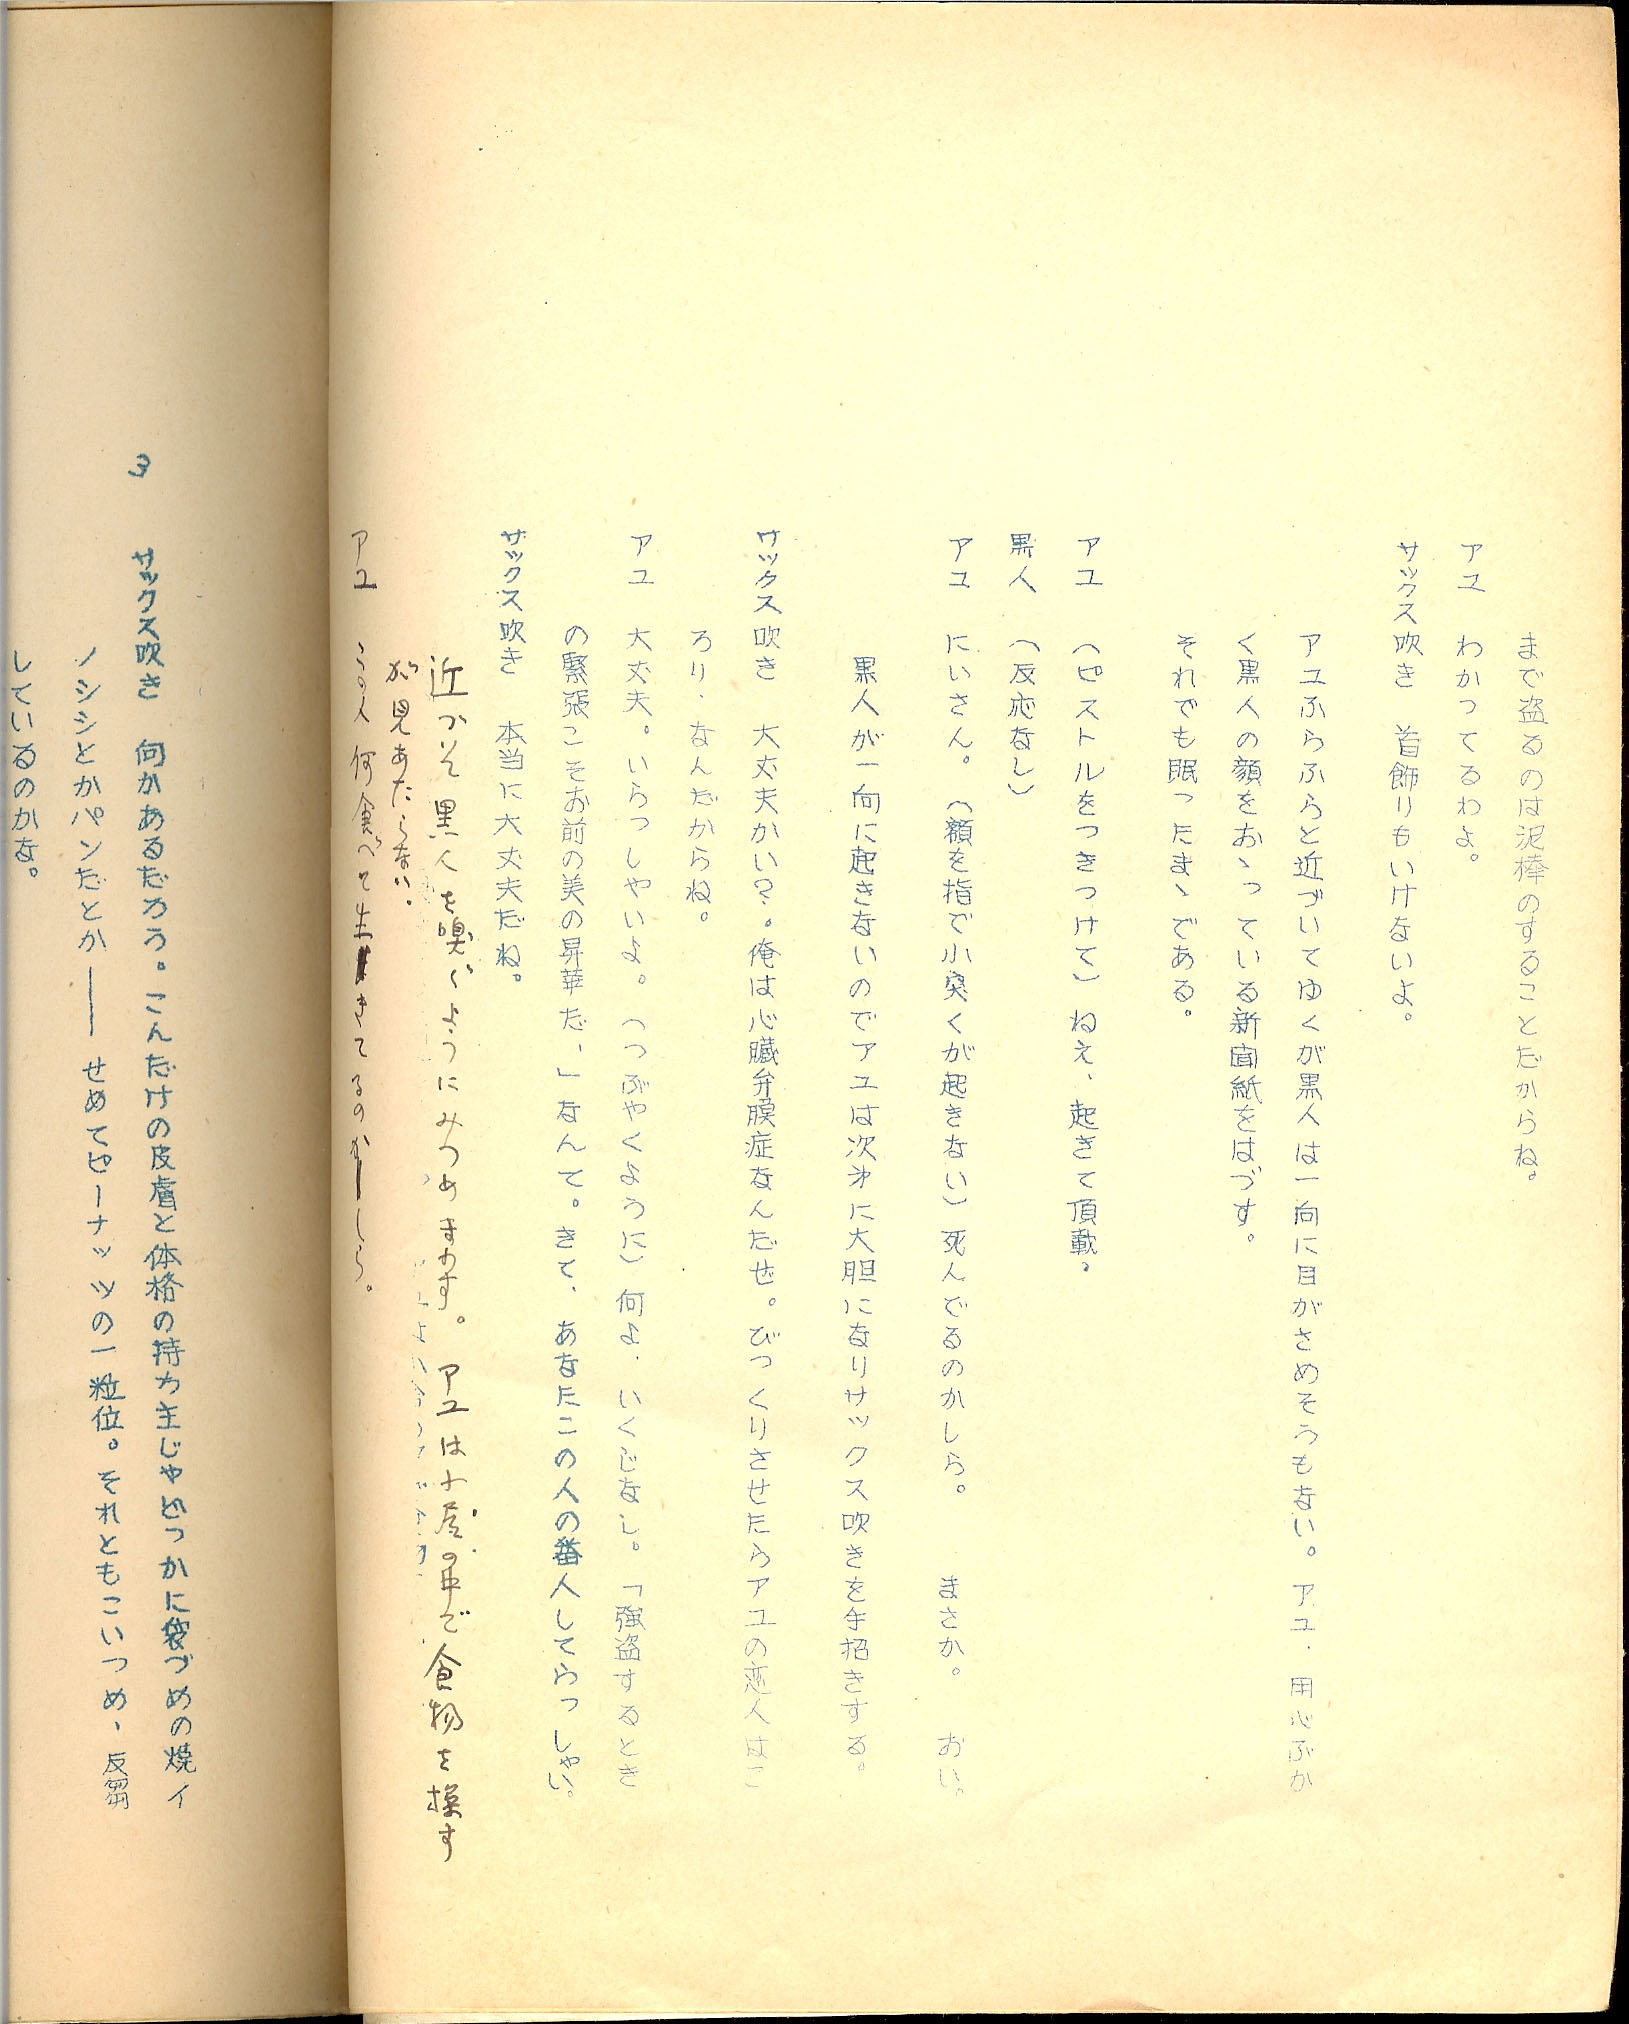 まで盗るのは泥棒のすることだからね。
アユ　わかってるわよ。
サックス吹き　首飾りもいけないよ。
アユふらふらと近づいてゆくが黒人は一向に目がさめそうもない。アユ、用心ぶか
く黒人の顔をおゝっている新聞紙をはづす。
それでも眠ったまゝである。
アユ　（ピストルをつきつけて）ねえ、起きて頂戴。
黒人　（反応なし）
アユ　にいさん。（額を指で小突くが起きない）死んでるのかしら。　まさか。　おい。
黒人が一向に起きないのでアユは次第に大胆になりサックス吹きを手招きする。
サックス吹き　大丈夫かい？。俺は心臓弁膜症なんだぜ。びっくりさせたらアユの恋人はこ
ろり、なんだからね。
アユ　大丈夫。いらっしやいよ。（つぶやくように）何よ、いくじなし。「強盗するとき
の緊張こそお前の美の昇華だ、」なんて。きて、あなたこの人の番人してらっしゃい。
サックス吹き　本当に大丈夫だね。
近づき黒人を嗅ぐようにみつめます。アユは小屋の中で食物を探す
が見あたらない。
アユ　この人何食べて生きてるのかしら。
3　サックス吹き　何かあるだろう。こんだけの皮膚と体格の持ち主じゃどっかに袋づめの焼イ
ノシシとかパンだとか――せめてピーナッツの一粒位。それともこいつめ、反芻
しているのかな。